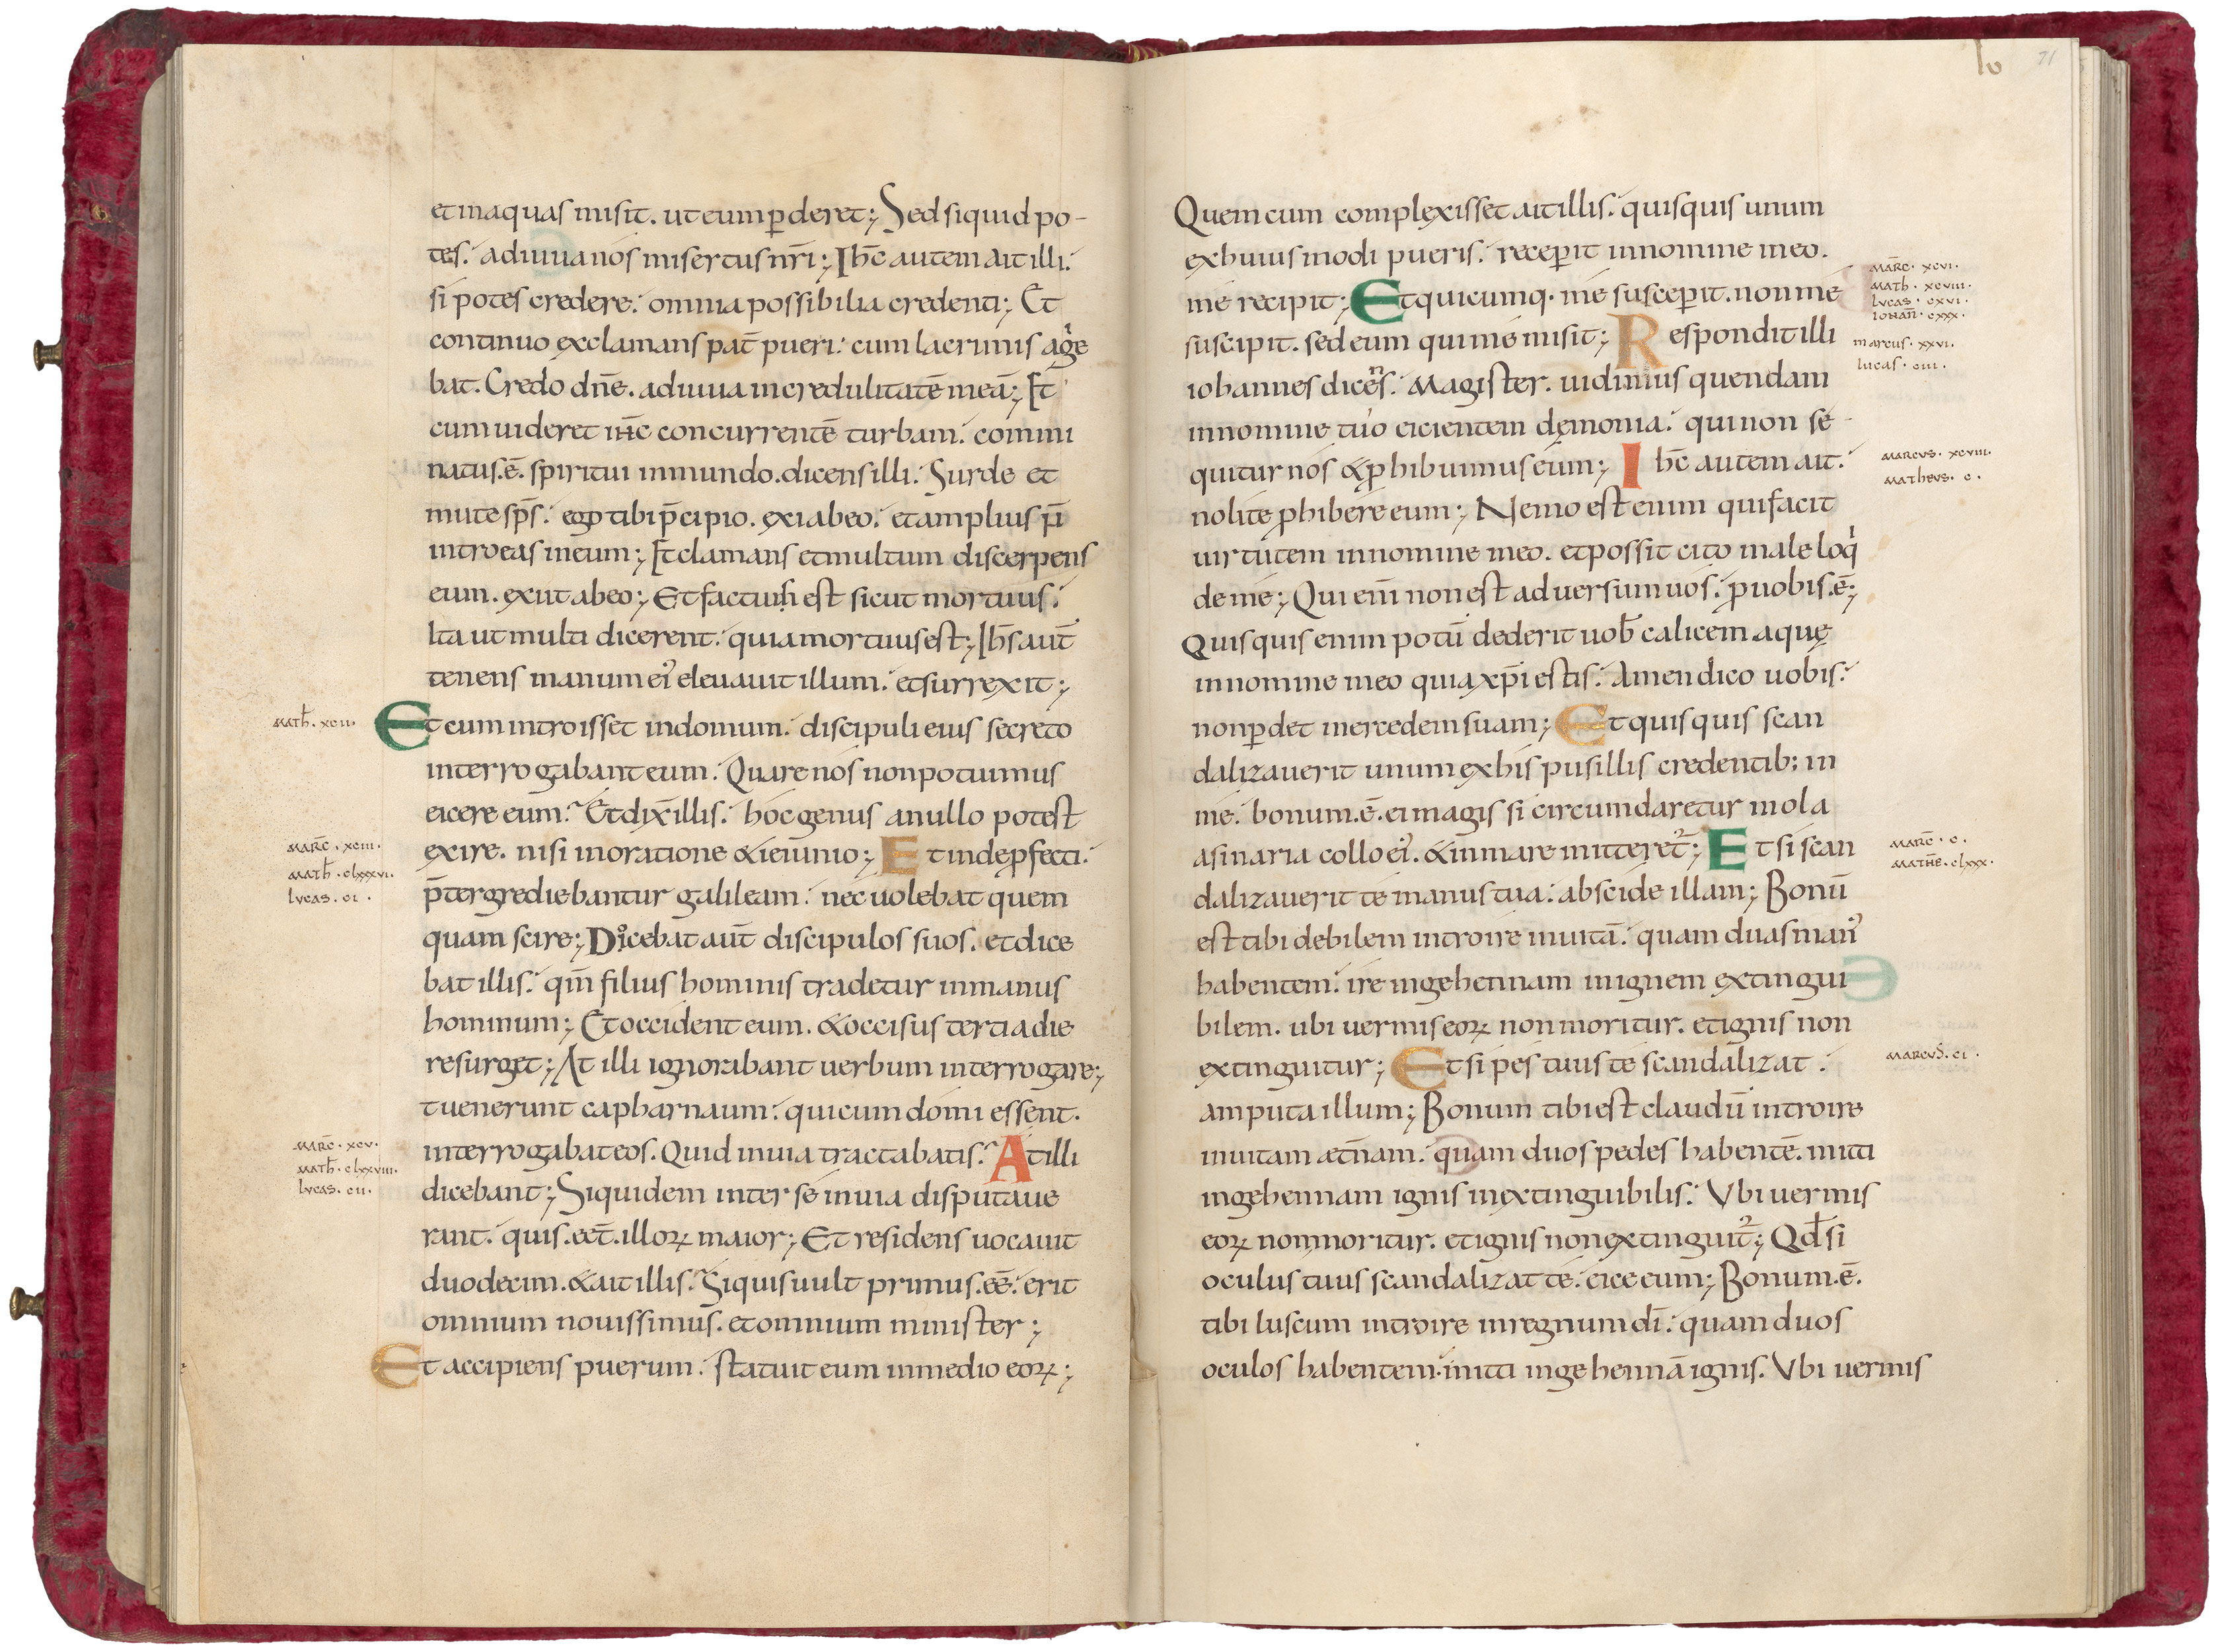 et in aquas misit. ut eum ꝑderet; Sed siquid po-
tes. adiuua nos misertus nr̄i; Ihc̄ autem ait illi.
si potes credere. omnia possibilia credenti; Et
continuo exclamans pat̄ pueri. cum lacrimis age
bat. Credo dn̄e. adiuua incredulitatē meā; Et
cum uideret ihc̄ concurrentē turbam. commi
natus.ē. spiritui inmundo. dicens illi. Surde et
mute sp̄s. ego tibi p̄cipio. exi ab eo. et amplius n̄
introeas in eum; Et clamans et multum discerpens
eum. exiit ab eo; Et factus est sicut mortuus.
Ita ut multi dicerent. quia mortuus est; Ihs̄ aut̄
tenens manum ei' eleuauit illum. et surrexit;
Math̄. xcii.
Et cum introisset in domum. discipuli eius secreto
interrogabant eum. Quare nos non potuimus
eicere eum. Et dix̄ illis. hoc genus a nullo potest
Marc̄. xciii.
Math̄. clxxxvi.
Lucas. ci.
exire. nisi in oratione & ieiunio; Et inde ꝓfecti.
p̄tergrediebantur galileam. nec uolebat quem
quam scire; Docebat aut̄ discipulos suos. et dice
bat illis. qm̄ filius hominis tradetur in manus
hominum; Et occident eum. & occisus tertia die
resurget; At illi ignorabant uerbum interrogare;
t uenerunt capharnaum. qui cum domi essent.
Marc̄. xcv.
Math̄. clxxviii.
Lucas. cii.
interrogabat eos. Quid in uia tractabatis. At illi
dicebant; Siquidem inter se in uia disputaue
rant. quis.eēt. illoꝝ maior; Et residens uocauit
duodecim. & ait illis. Siquis uult primus.eē. erit
omnium nouissimus. et omnium minister;
Et accipiens puerum. statuit eum in medio eoꝝ;
lv 71
Quem cum complexisset ait illis. quisquis unum
ex huius modi pueris. receꝑit in nomine meo.
me recipit; Et quicumq. me susceꝑit. non me
Marc̄. xcvi.
Math̄. xcviii.
Lucas. cxvi.
Iohan̄. cxxx.
suscipit. sed eum qui me misit; Respondit illi
Marcus. xxvi.
Lucas. ciii.
iohannes dicens. Magister. uidimus quendam
in nomine tuo eicientem dęmonia. qui non se
quitur nos & ꝓhibuimus eum; Ihc̄ autem ait.
Marcus. xcviii.
Matheus. c.
nolite ꝓhibere eum; Nemo est enim qui facit
uirtutem in nomine meo. et possit cito male loqi
de me; Qui eni᷆ non est aduersum uos. ꝓ uobis.ē;
Quisquis enim potū dederit uob̄ calicem aquę
in nomine meo quia xp̄i estis. Amen dico uobis.
non ꝑdet mercedem suam; Et quisquis scan
dalizauerit unum ex his pusillis credentib; in
me. bonum.ē. ei magis si circumdaretur mola
asinaria collo ei'. & in mare mitteret'; Et si scan
Marc̄. c.
Mathē. clxxx.
dalizauerit te manus tua. abscide illam; Bonū
est tibi debilem introire in uitā. quam duas man'
habentem. ire in gehennam in ignem extingui
bilem. ubi uermis eoꝝ non moritur. et ignis non
extinguitur; Et si pes tuus te scandalizat.
Marcus. ci.
amputa illum; Bonum tibi est claudū introire
in uitam æt̄nam. quam duos pedes habentē. mitti
in gehennam ignis inextinguibilis. Vbi uermis
eoꝝ non moritur. et ignis non extinguit'; Qd̄ si
oculus tuus scandalizat te. eice eum; Bonum.ē.
tibi luscum introire in regnum dī. quam duos
oculos habentem. mitti in gehennā ignis. Vbi uermis